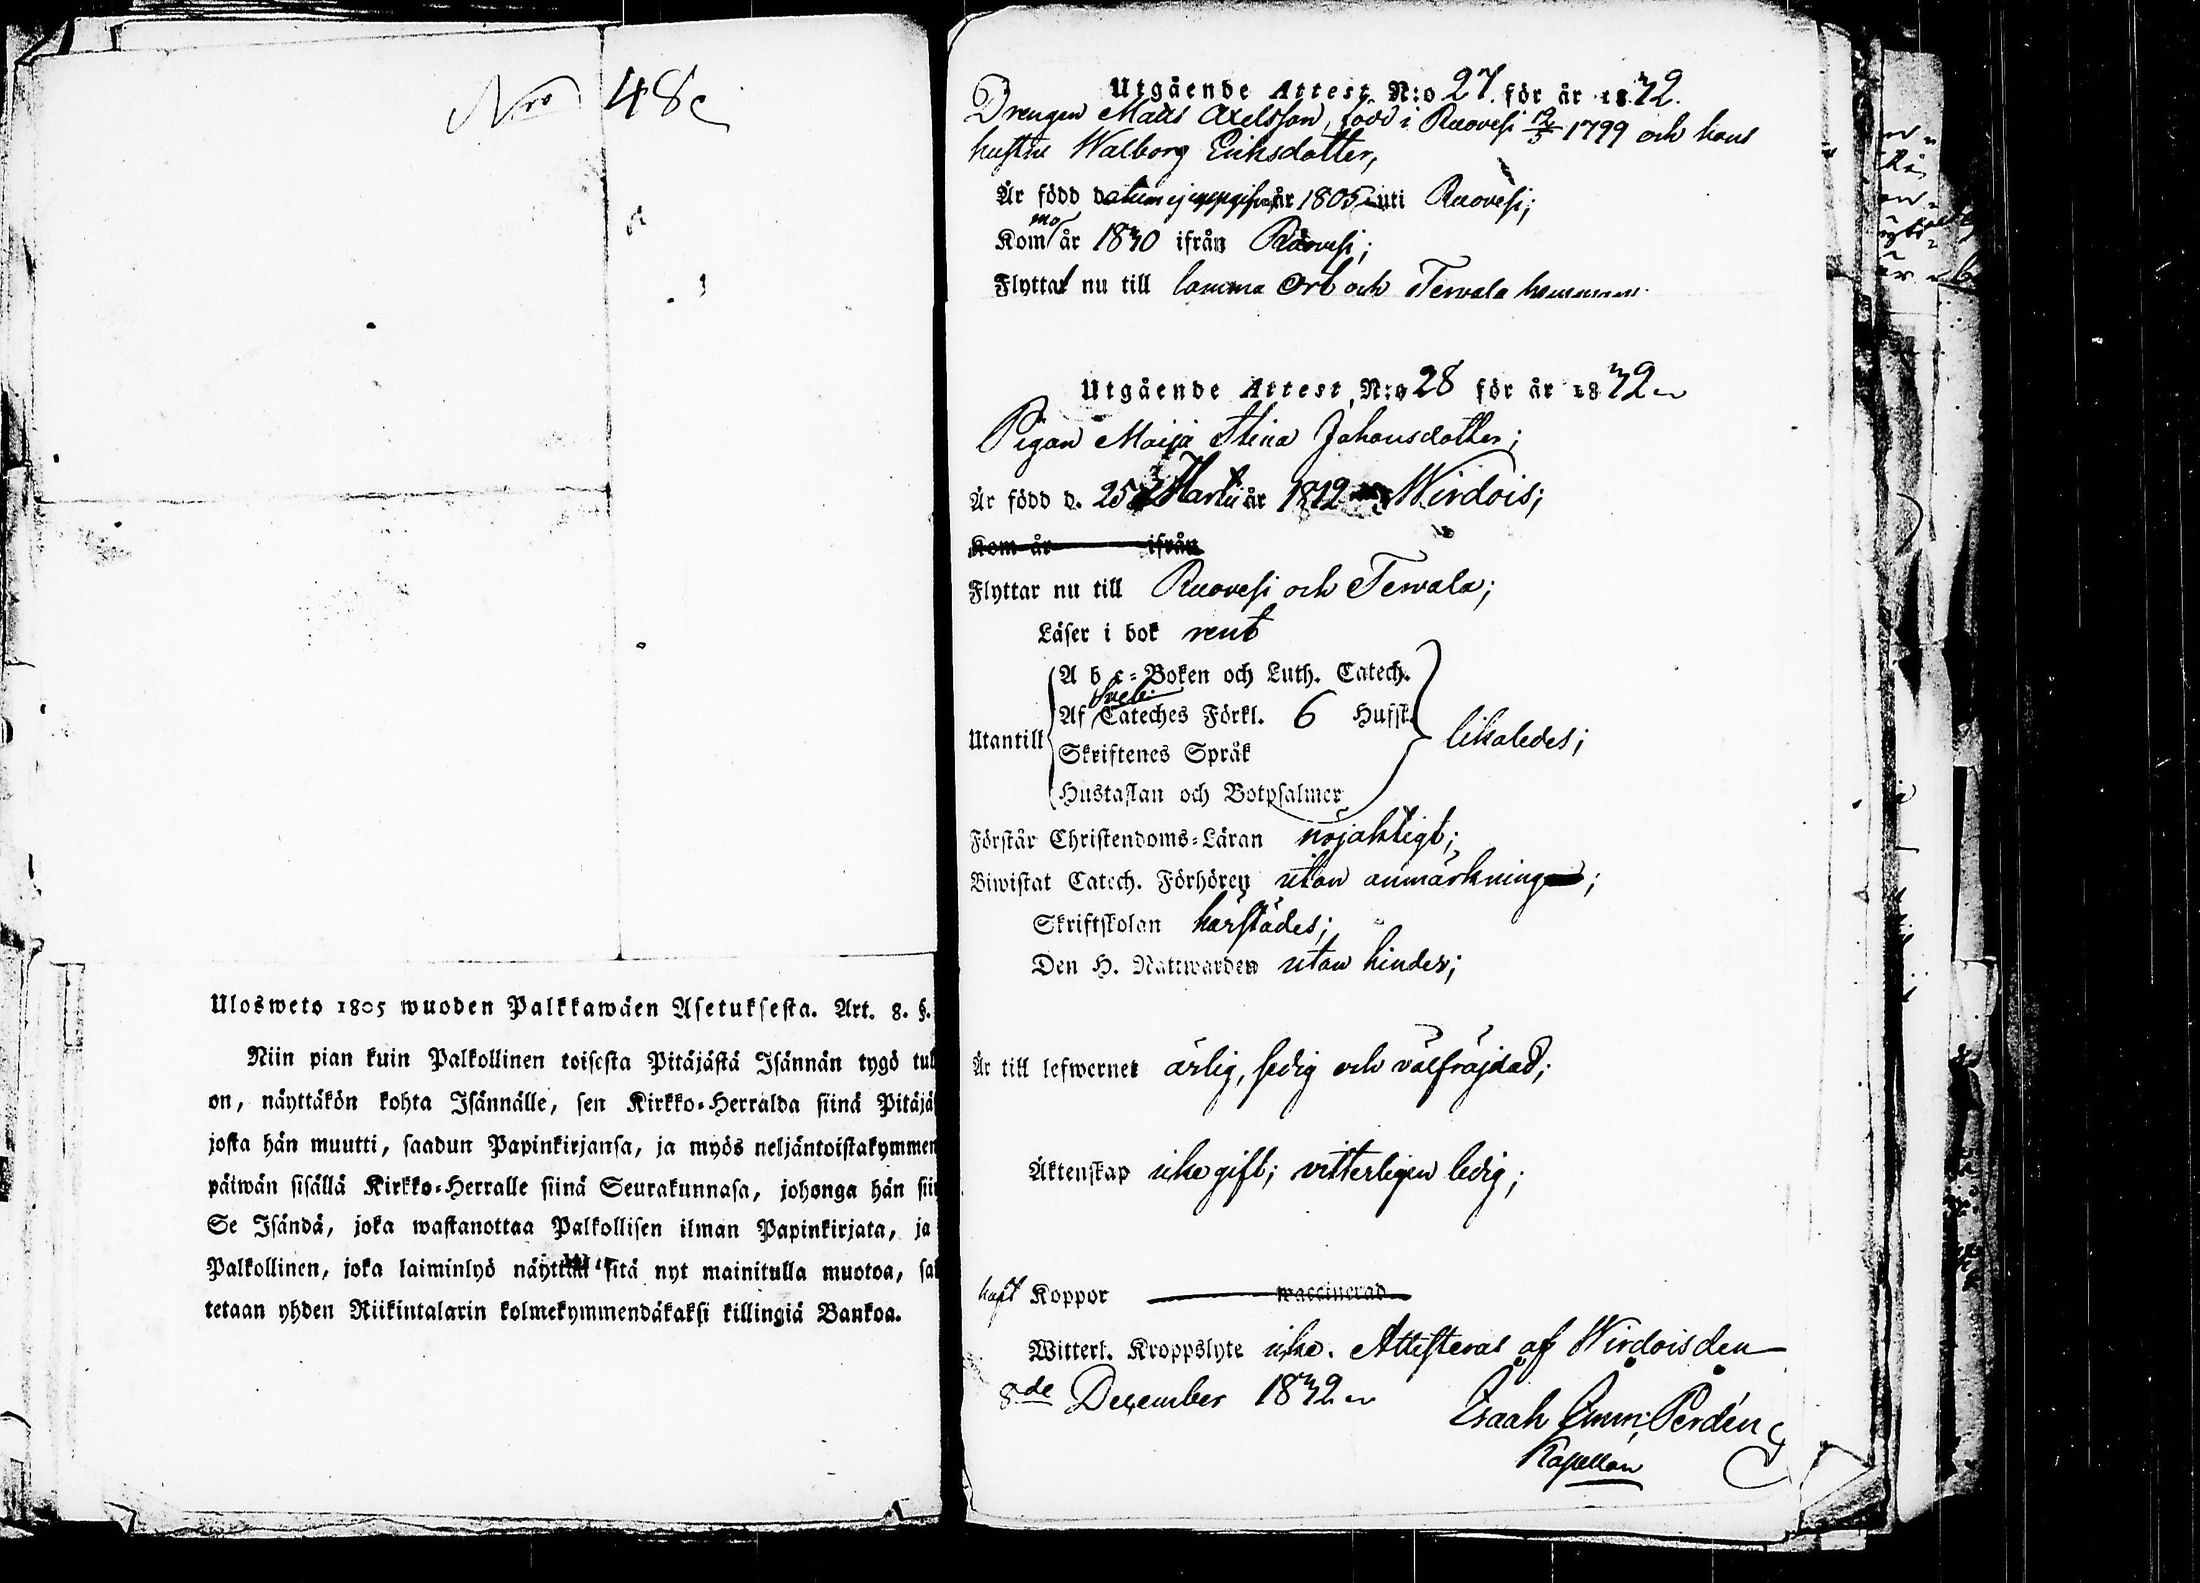 Nro 48
Ulosweto 1805 wuoden Palkkawäen Asetuksesta. Art. 8. §.
Niin pian kuin Palkollinen toisesta Pitäjästä Isännän tygö tul
on, näyttäkön kohta Isännälle, sen Kirkko-Herralda siinä Pitäjä
josta hän muutti, saadun Papinkirjansa, ja myös neljäntoistakymmen
päiwän sisällä Kirkko-Herralle siinä Seurakunnasa, johonga hän sii
Se Isändä, joka wastanottaa Palkollisen ilman Papinkirjata, ja
Palkollinen, joka laiminlyö näyttää sitä nyt mainitulla muotoa, sa
tetaan yhden Riikintalarin kolmekymmendäkaksi killingiä Bankoa.
Utgående Attest N:o 27. för år 1832.
Drengen Matts Axelsson, född i Ruovesi 12/5 1799 och hans
hustru Walborg Eriksdotter,
Är född datum ej uppgifvet år 1805 uti Ruovesi;
Kommo år 1830 ifrån Ruovesi;
Flytta nu till samma Ort och Terwala hemman.
Utgående Attest, N:o 28 för år 1832
Pigan Maija Stina Johansdotter;
Är född d. 25 Martii år 1812 Wirdois;
Kom år ifrån
Flyttar nu till Ruovesi och Terwala;
Läser i bok rent
A b c-Boken och Luth. Catech.
Sveb.
Af Cateches Förkl. 6 Hufst.
Utantill likaledes;
Skriftenes Språk
Hustaflan och Botpsalmer
Förstår Christendoms-Läran nöjaktigt;
Biwistat Catech. Förhören utan anmärkning;
Skriftskolan härstädes;
Den H. Nattwarden utan hinder;
Är till lefwernet ärlig, sedig och välfräjdad;
Äktenskap icke gift; vitterligen ledig;
haft Koppor waccinerad
Witterl. Kroppslyte icke. Attesteras af Wirdois den
8de December 1832
Isaak Perdén
Kapellan